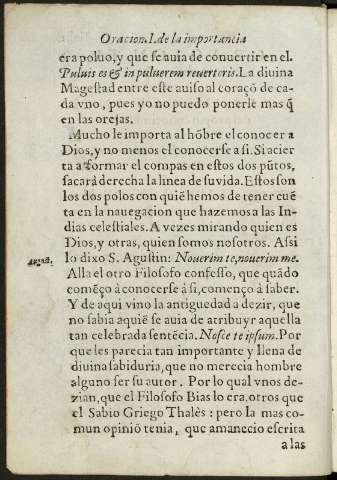 Oracion. I. de la importancia
era poluo, y que se auia de conuertir en el.
Puluis es & in puluerem reuerteris. La diuina
Magestad entre este auiso al coraçõ de ca-
da vno, pues yo no puedo ponerle mas q̃
en las orejas.
Mucho le importa al hõbre el conocer a
Dios, y no menos el conocerse a si. Si acier
ta a formar el compas en estos dos pũtos,
sacarà derecha la linea de su vida. Estos son
los dos polos con quiẽ hemos de tener cuẽ
ta en la nauegacion que hazemos a las In-
dias celestiales. A vezes mirando quien es
Dios, y otras, quien somos nosotros. Assi
lo dixo S. Agustin: Nouerim te, nouerim me.
August.
Alla el otro Filosofo confesso, que quãdo
comẽço à conocerse à si, començo à saber.
Y de aqui vino la antiguedad a dezir, que
no sabia aquiẽ se auia de atribuyr aquella
tan celebrada sentẽcia. Nosce te ipsum. Por
que les parecia tan importante y llena de
diuina sabiduria, que no merecia hombre
alguno ser su autor. Por lo qual vnos de-
zian, que el Filosofo Bias lo era, otros que
el Sabio Griego Thalès: pero la mas co-
mun opiniõ tenia, que amanecio escrita
a las